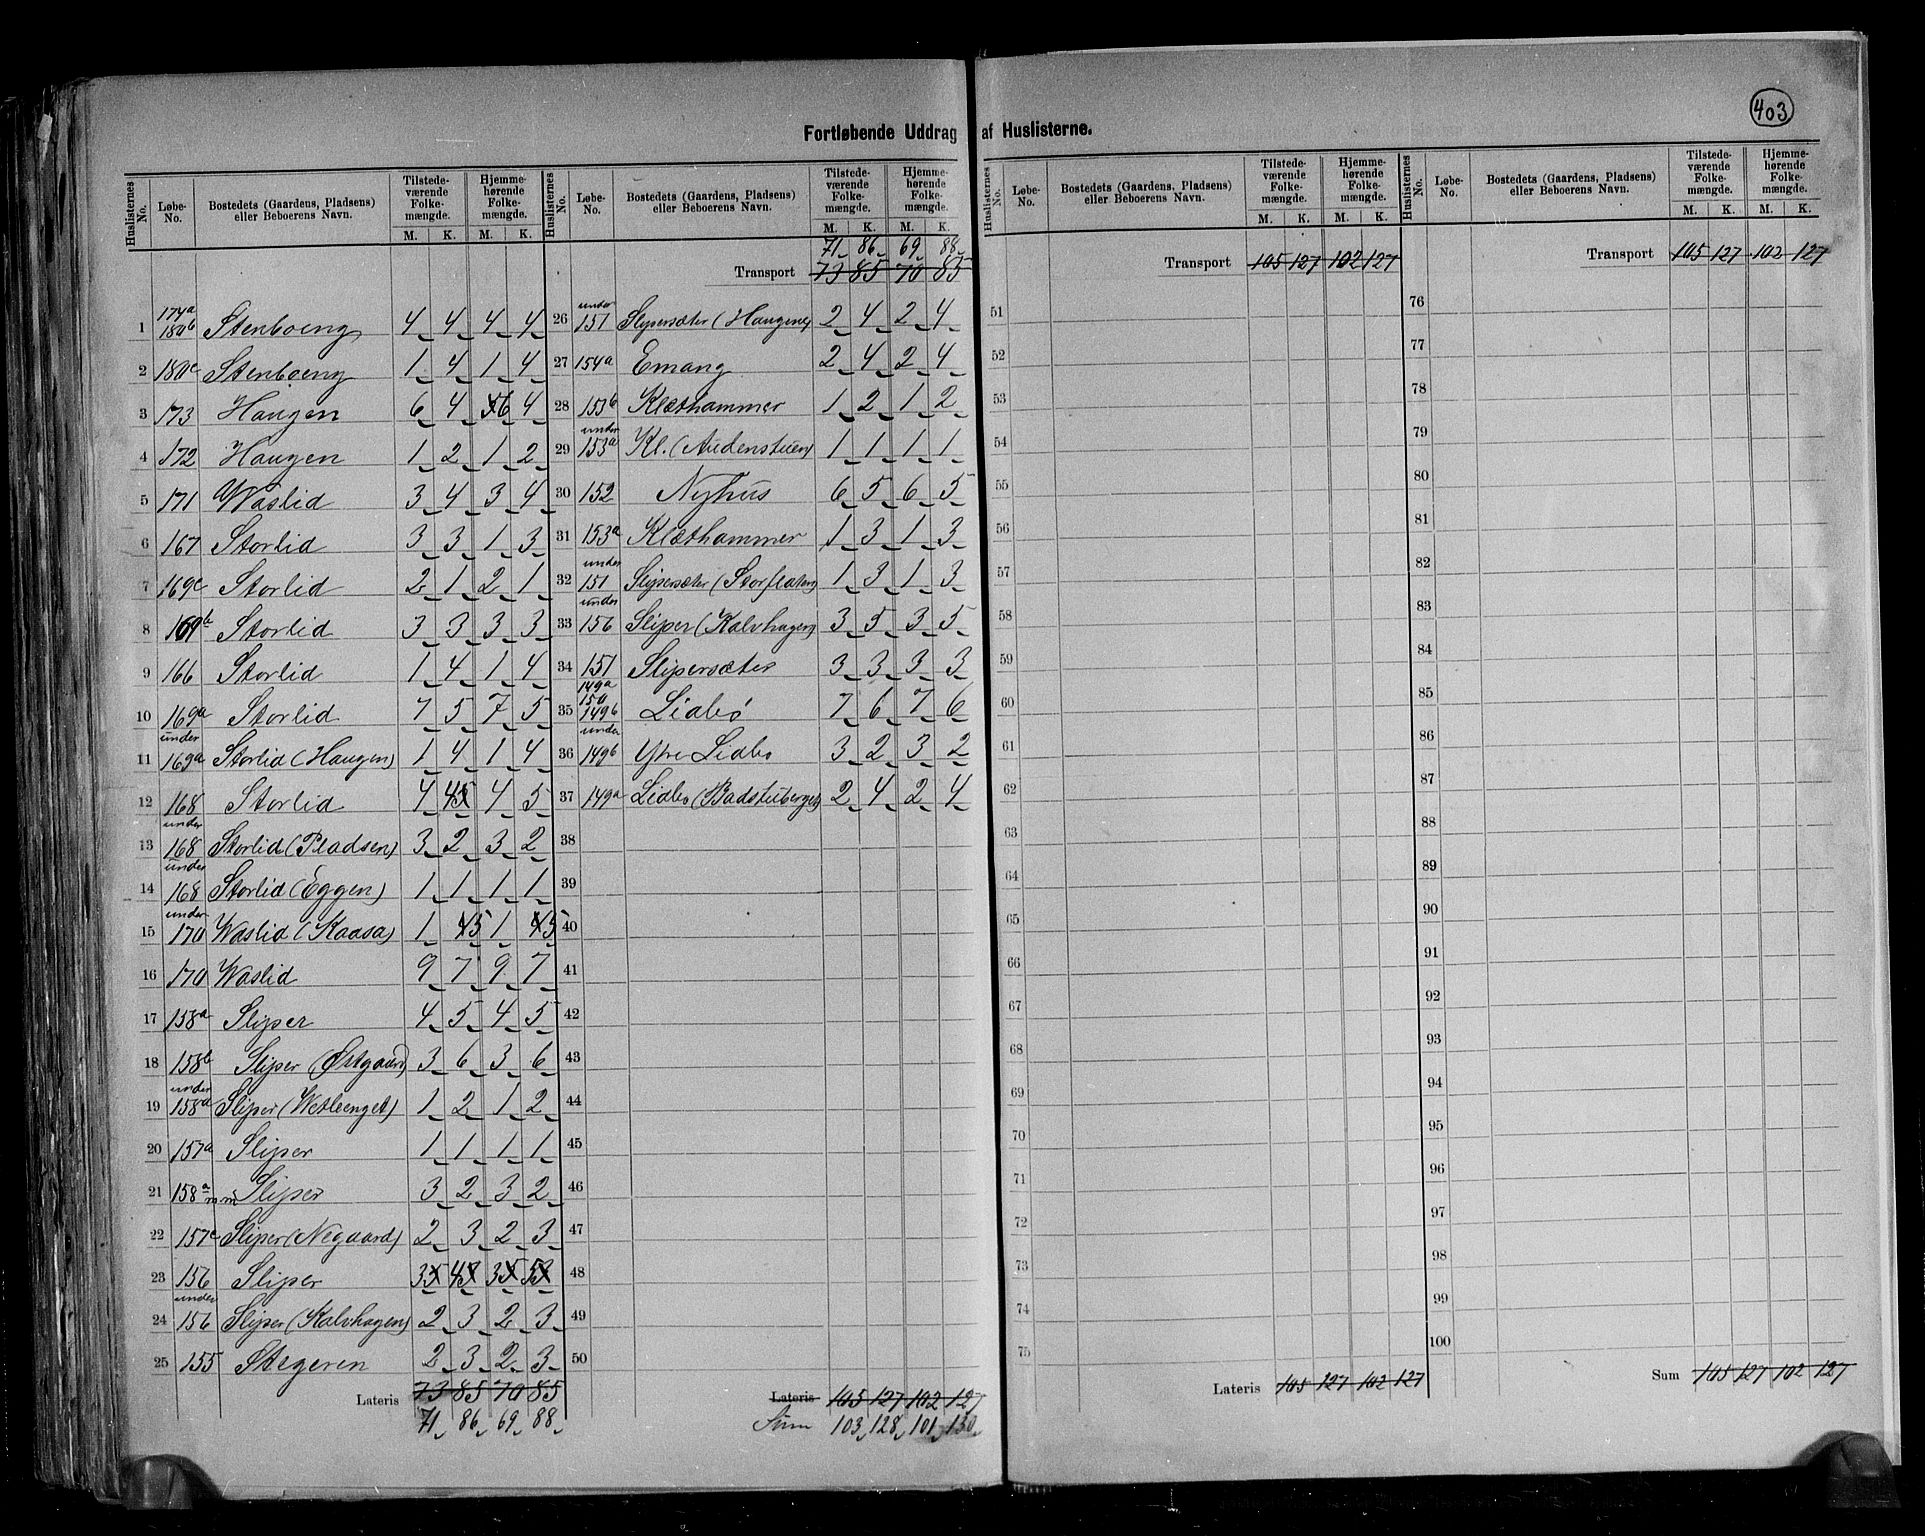 403
Fortløbende Uddrag af Huslisterne.
Huslisternes No. | Løbe-No. | Bostedets (Gaardens, Pladsens) eller Beboerens Navn. | Tilstedeværende Folkemængde. M. K. | Hjemmehørende Folkemængde. M. K.
1 | 174a 180b | Stenboeng | 4 | 4 | 4 | 4
2 | 180c | Stenboeng | 1 | 4 | 1 | 4
3 | 173 | Haugen | 6 | 4 | 5 6 | 4
4 | 172 | Haugen | 1 | 2 | 1 | 2
5 | 171 | Waslid | 3 | 4 | 3 | 4
6 | 167 | Storlid | 3 | 3 | 1 | 3
7 | 169c | Storlid | 2 | 1 | 2 | 1
8 | 169b | Storlid | 3 | 3 | 3 | 3
9 | 166 | Storlid | 1 | 4 | 1 | 4
10 | 169a | Storlid | 7 | 5 | 7 | 5
11 | under 169a | Storlid (Haugen) | 1 | 4 | 1 | 4
12 | 168 | Storlid | 4 | 4 5 | 4 | 5
13 | under 168 | Storlid (Pladsen) | 3 | 2 | 3 | 2
14 | under 168 | Storlid (Eggen) | 1 | 1 | 1 | 1
15 | under 170 | Waslid (Kaasa) | 1 | 4 5 | 1 | 4 5
16 | 170 | Waslid | 9 | 7 | 9 | 7
17 | 158a | Slipser | 4 | 5 | 4 | 5
18 | 158b | Slipser (Østgaard) | 3 | 6 | 3 | 6
19 | under 158a | Slipser (Wetleenget) | 1 | 2 | 1 | 2
20 | 157a | Slipser | 1 | 1 | 1 | 1
21 | 158a m m | Slipser | 3 | 2 | 3 | 2
22 | 157c | Slipser (Negaard) | 2 | 3 | 2 | 3
23 | 156 | Slipser | 3 5 | 4 | 3 5 | 5
24 | under 156 | Slipser (Kalvhagen) | 2 | 3 | 2 | 3
25 | 155 | Stegeren | 2 | 3 | 2 | 3
Lateris 73 85 70 85
71 86 69 88
Huslisternes No. | Løbe-No. | Bostedets (Gaardens, Pladsens) eller Beboerens Navn. | Tilstedeværende Folkemængde. M. K. | Hjemmehørende Folkemængde. M. K.
71 86 69 88
Transport 73 85 70 85
26 | under 151 | Slipersæter (Haugene) | 2 | 4 | 2 | 4
27 | 154a | Emang | 2 | 4 | 2 | 4
28 | 153b | Klæthammer | 1 | 2 | 1 | 2
29 | under 153a | Kl. (Audenstuen) | 1 | 1 | 1 | 1
30 | 152 | Nyhus | 6 | 5 | 6 | 5
31 | 153a | Klæthammer | 1 | 3 | 1 | 3
32 | under 151 | Slipersæter (Storflaten) | 1 | 3 | 1 | 3
33 | under 156 | Slipser (Kalvhagen) | 3 | 5 | 3 | 5
34 | 151 | Slipersæter | 3 | 3 | 3 | 3
35 | 149a 150 149b | Lidbø | 7 | 6 | 7 | 6
36 | under 149b | Ytre Lidbø | 3 | 2 | 3 | 2
37 | 149a | Lidbø (Badstuberget) | 2 | 4 | 2 | 4
38
39
40
41
42
43
44
45
46
47
48
49
50
Lateris 105 127 102 127
Sum 103 128 101 130
Huslisternes No. | Løbe-No. | Bostedets (Gaardens, Pladsens) eller Beboerens Navn. | Tilstedeværende Folkemængde. M. K. | Hjemmehørende Folkemængde. M. K.
Transport 105 127 102 127
51
52
53
54
55
56
57
58
59
60
61
62
63
64
65
66
67
68
69
70
71
72
73
74
75
Lateris 105 127 102 127
Huslisternes No. | Løbe-No. | Bostedets (Gaardens, Pladsens) eller Beboerens Navn. | Tilstedeværende Folkemængde. M. K. | Hjemmehørende Folkemængde. M. K.
Transport 105 127 102 127
76
77
78
79
80
81
82
83
84
85
86
87
88
89
90
91
92
93
94
95
96
97
98
99
100
Sum 105 127 102 127